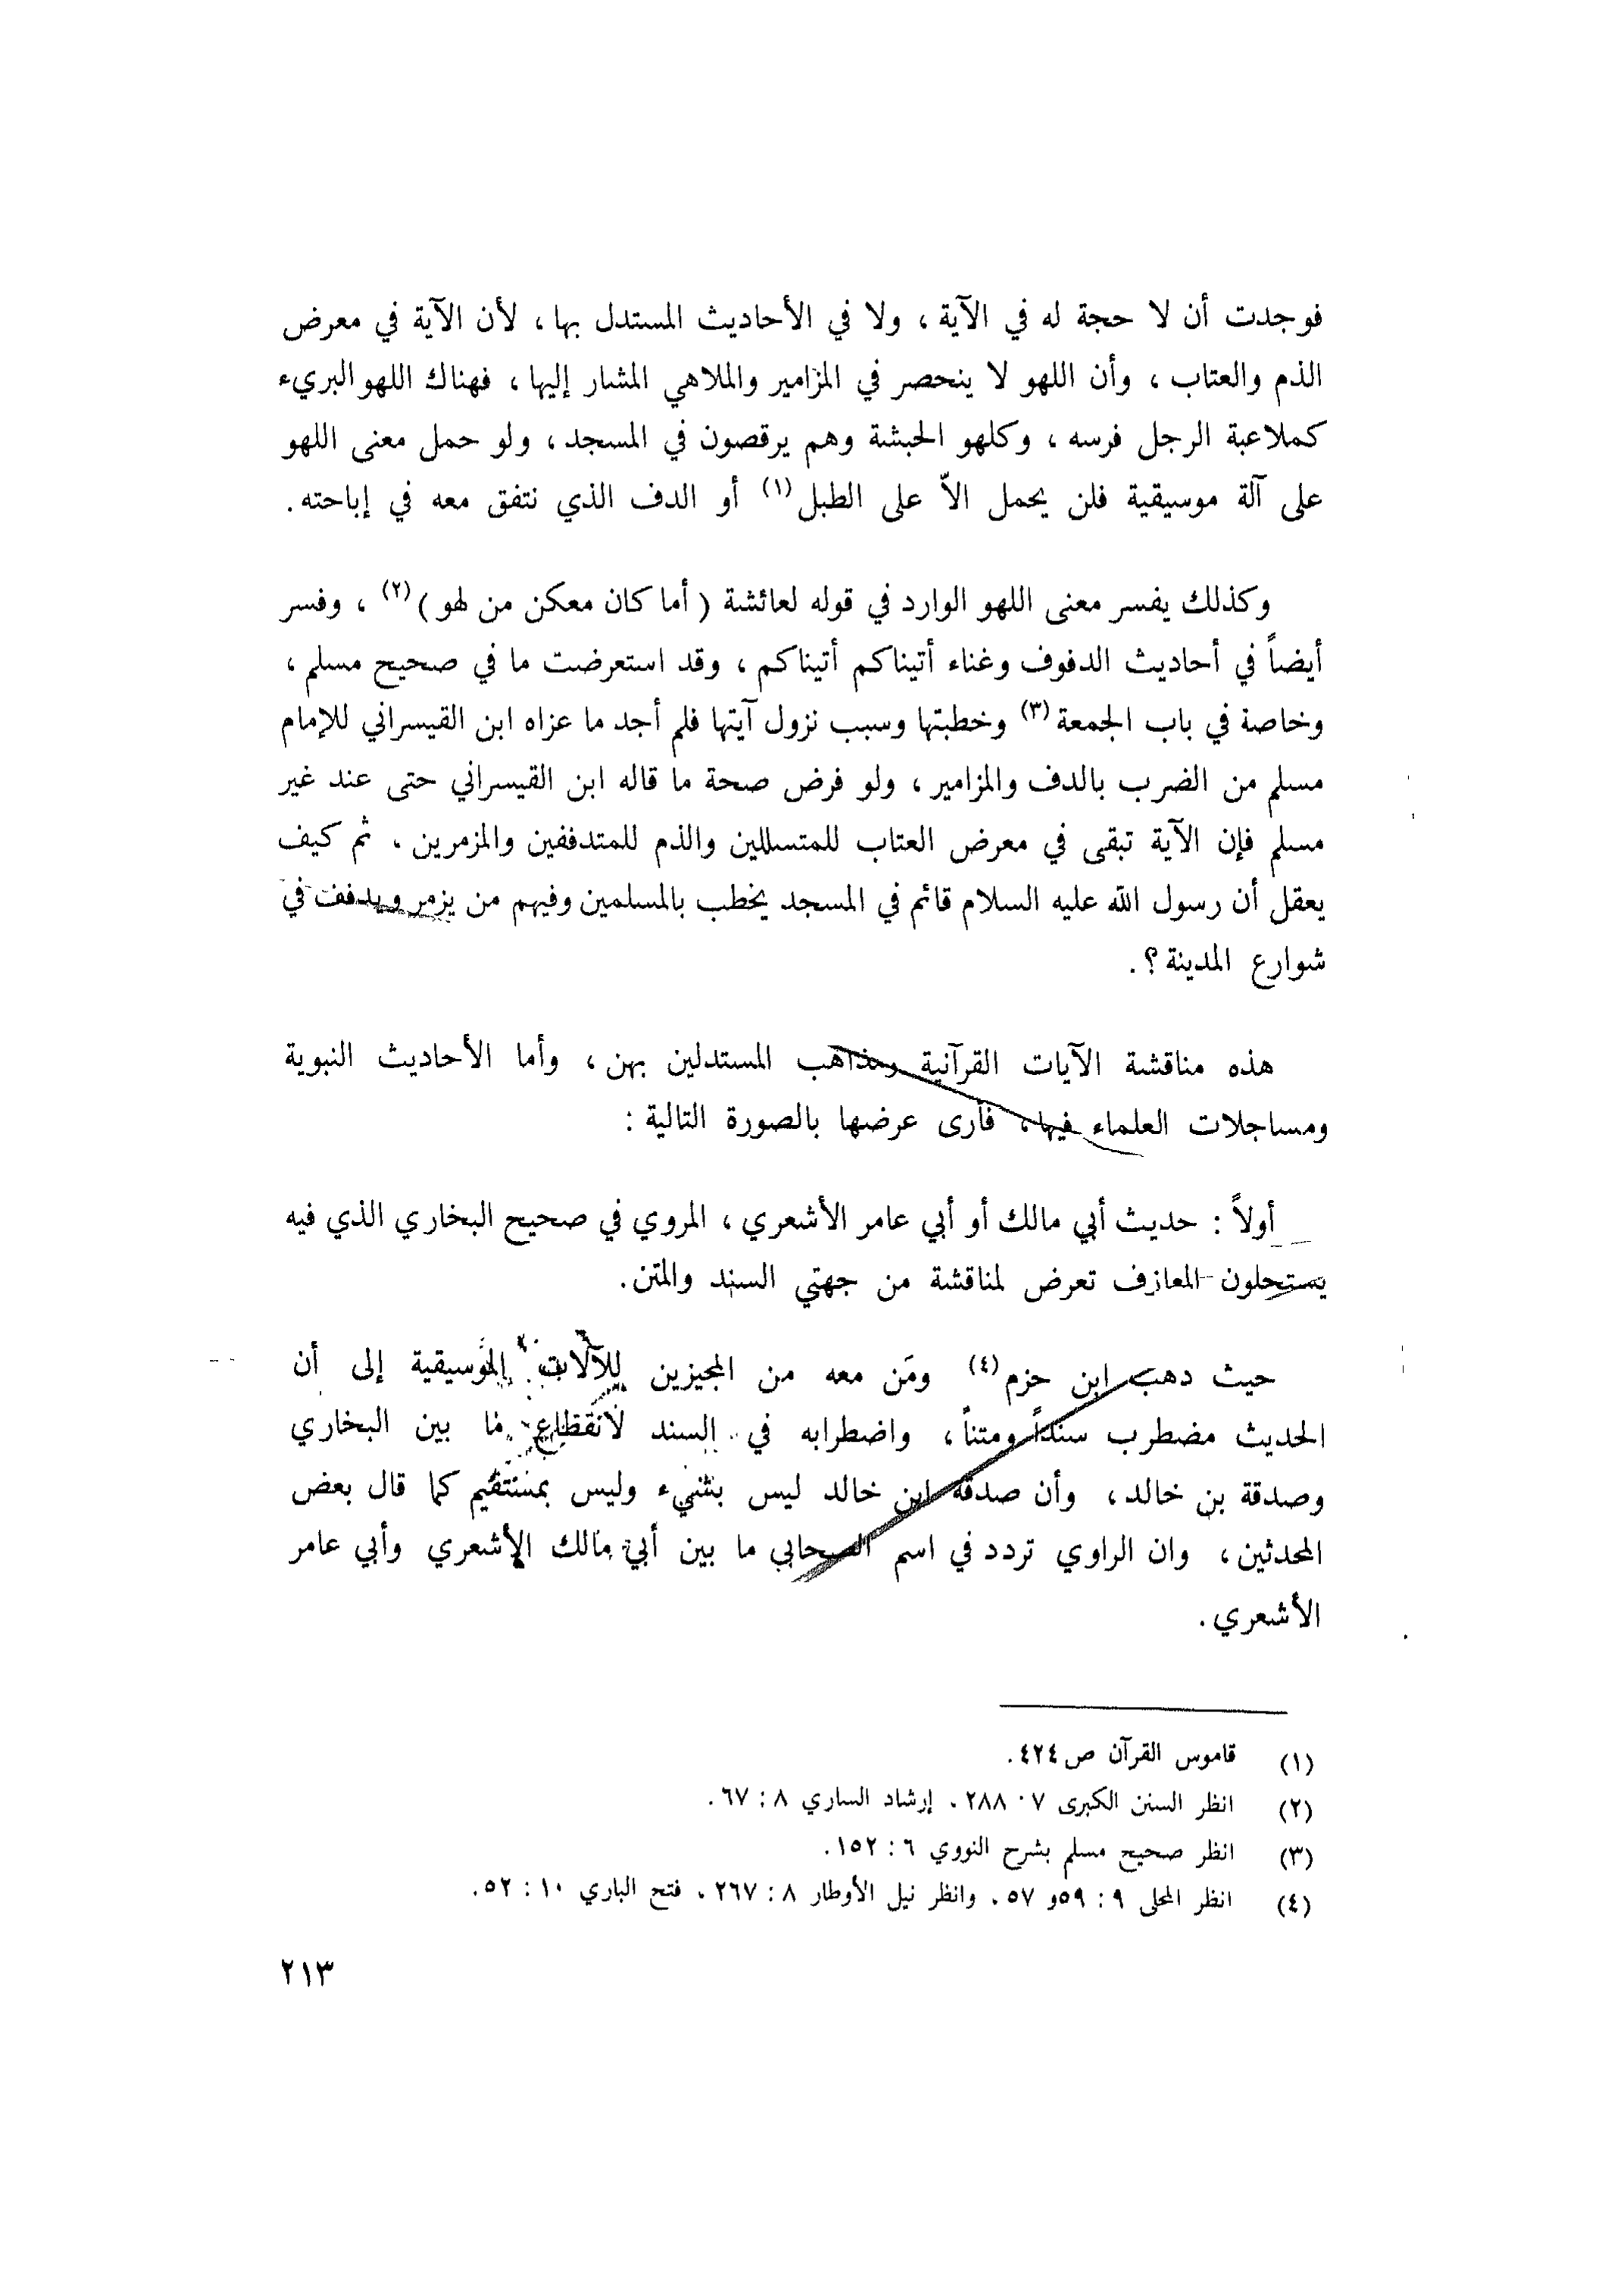 فوجدت أن لا حجة له في الآية ، ولا في الأحاديث المستدل بها ، لأن الآية في معرض
الذم والعتاب ، وأن اللهو لا ينحصر في المزامير والملاهي المشار إليها ، فهناك اللهو البريء
كملاعبة الرجل فرسه ، وكلهو الحبشة وهم يرقصون في المسجد ، ولو حمل معنى اللهو
على آلة موسيقية فلن يحمل الاّ على الطبل (١) أو الدف الذي نتفق معه في إباحته .
وكذلك يفسر معنى اللهو الوارد في قوله لعائشة ( أما كان معكن من لهو ) (٢) ، وفسر
أيضاً في أحاديث الدفوف وغناء أتيناكم أتيناكم ، وقد استعرضت ما في صحيح مسلم ،
وخاصة في باب الجمعة (٣) وخطبتها وسبب نزول آيتها فلم أجد ما عزاه ابن القيسراني للإمام
مسلم من الضرب بالدف والمزامير ، ولو فرض صحة ما قاله ابن القيسراني حتى عند غير
مسلم فإن الآية تبقى في معرض العتاب للمتسللين والذم للمتدففين والمزمرين . ثم كيف
يعقل أن رسول الله عليه السلام قائم في المسجد يخطب بالمسلمين وفيهم من يزمر ويدفف في
شوارع المدينة ؟ .
هذه مناقشة الآيات القرآنية ومذاهب المستدلين بهن ، وأما الأحاديث النبوية
ومساجلات العلماء فيها ، فأرى عرضها بالصورة التالية :
أولاً : حديث أبي مالك أو أبي عامر الأشعري ، المروي في صحيح البخاري الذي فيه
يستحلون المعازف تعرض لمناقشة من جهتي السند والمتن .
حيث ذهب ابن حزم (٤) ومَن معه من المجيزين للآلات الموسيقية إلى أن
الحديث مضطرب سنداً ومتناً ، واضطرابه في السند لانقطاع ما بين البخاري
وصدقة بن خالد ، وأن صدقة ابن خالد ليس بشيء وليس بمستقيم كما قال بعض
المحدثين ، وان الراوي تردد في اسم الصحابي ما بين أبي مالك الأشعري وأبي عامر
الأشعري .
(١) قاموس القرآن ص ٤٢٤ .
(٢) انظر السنن الكبرى ٧ : ٢٨٨ ، إرشاد الساري ٨ : ٦٧ .
(٣) انظر صحيح مسلم بشرح النووي ٦ : ١٥٢ .
(٤) انظر المحلى ٩ : ٥٩ و ٥٧ ، وانظر نيل الأوطار ٨ : ٢٦٧ ، فتح الباري ١٠ : ٥٢ .
٢١٣